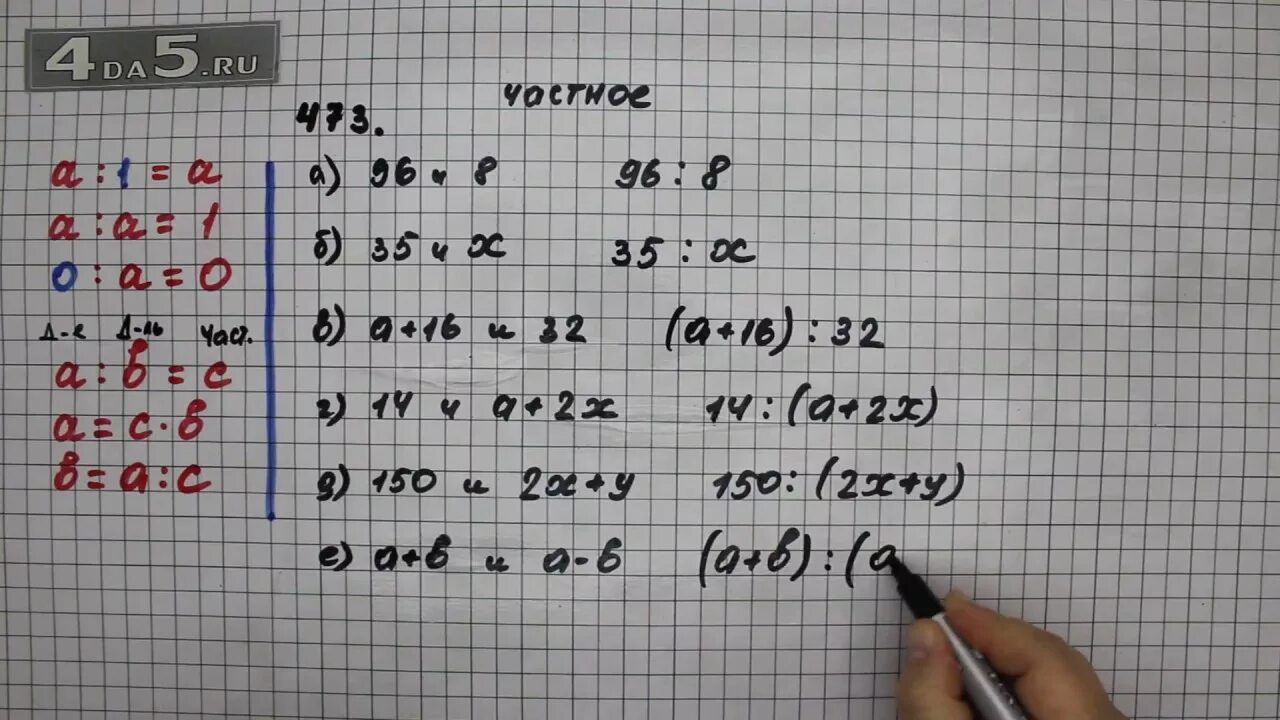 4DA5.RU
частное
473.
а) 96 и 8 96 : 8
б) 35 и x 35 : x
в) a+16 и 32 (a+16) : 32
г) 14 и a+2x 14 : (a+2x)
д) 150 и 2x+y 150 : (2x+y)
е) a+b и a-b (a+b) : (a
a : 1 = a
a : a = 1
0 : a = 0
Д-е Д-ль Част.
a : b = c
a = c · b
b = a : c